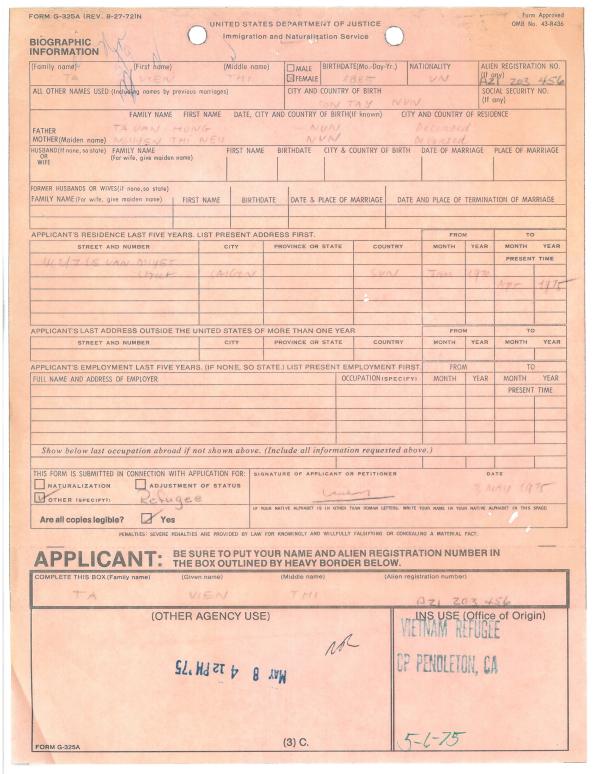 FORM G-325A (REV. 8-27-72)N
Form Approved
OMB No. 43-R436
UNITED STATES DEPARTMENT OF JUSTICE
Immigration and Naturalization Service
BIOGRAPHIC
INFORMATION
(Family name) (First name) (Middle name) MALE FEMALE BIRTHDATE(Mo.-Day-Yr.) NATIONALITY ALIEN REGISTRATION NO. (If any)
TA VIEN THI VN A21 203 456
ALL OTHER NAMES USED (Including names by previous marriages) CITY AND COUNTRY OF BIRTH SOCIAL SECURITY NO. (If any)
SON TAY NVN
FAMILY NAME FIRST NAME DATE, CITY AND COUNTRY OF BIRTH(If known) CITY AND COUNTRY OF RESIDENCE
FATHER TA VAN HUNG NVN Deceased
MOTHER(Maiden name) THI NVN Deceased
HUSBAND(If none, so state) OR WIFE FAMILY NAME (For wife, give maiden name) FIRST NAME BIRTHDATE CITY & COUNTRY OF BIRTH DATE OF MARRIAGE PLACE OF MARRIAGE
FORMER HUSBANDS OR WIVES(if none, so state)
FAMILY NAME (For wife, give maiden name) FIRST NAME BIRTHDATE DATE & PLACE OF MARRIAGE DATE AND PLACE OF TERMINATION OF MARRIAGE
APPLICANT'S RESIDENCE LAST FIVE YEARS. LIST PRESENT ADDRESS FIRST. FROM TO
STREET AND NUMBER CITY PROVINCE OR STATE COUNTRY MONTH YEAR MONTH YEAR
PRESENT TIME
VAN
SAIGON SVN 1970
1975
APPLICANT'S LAST ADDRESS OUTSIDE THE UNITED STATES OF MORE THAN ONE YEAR FROM TO
STREET AND NUMBER CITY PROVINCE OR STATE COUNTRY MONTH YEAR MONTH YEAR
APPLICANT'S EMPLOYMENT LAST FIVE YEARS. (IF NONE, SO STATE.) LIST PRESENT EMPLOYMENT FIRST. FROM TO
FULL NAME AND ADDRESS OF EMPLOYER OCCUPATION (SPECIFY) MONTH YEAR MONTH YEAR
PRESENT TIME
Show below last occupation abroad if not shown above. (Include all information requested above.)
THIS FORM IS SUBMITTED IN CONNECTION WITH APPLICATION FOR: SIGNATURE OF APPLICANT OR PETITIONER DATE
NATURALIZATION ADJUSTMENT OF STATUS
OTHER (SPECIFY): Refugee MAY 1975
IF YOUR NATIVE ALPHABET IS IN OTHER THAN ROMAN LETTERS, WRITE YOUR NAME IN YOUR NATIVE ALPHABET IN THIS SPACE
Are all copies legible? Yes
PENALTIES: SEVERE PENALTIES ARE PROVIDED BY LAW FOR KNOWINGLY AND WILLFULLY FALSIFYING OR CONCEALING A MATERIAL FACT.
APPLICANT: BE SURE TO PUT YOUR NAME AND ALIEN REGISTRATION NUMBER IN
THE BOX OUTLINED BY HEAVY BORDER BELOW.
COMPLETE THIS BOX (Family name) (Given name) (Middle name) (Alien registration number)
TA VIEN THI A21 203 456
(OTHER AGENCY USE) INS USE (Office of Origin)
VIETNAM REFUGEE
CP PENDLETON, CA
MAY 8 4 12 PM '75
5-6-75
(3) C.
FORM G-325A